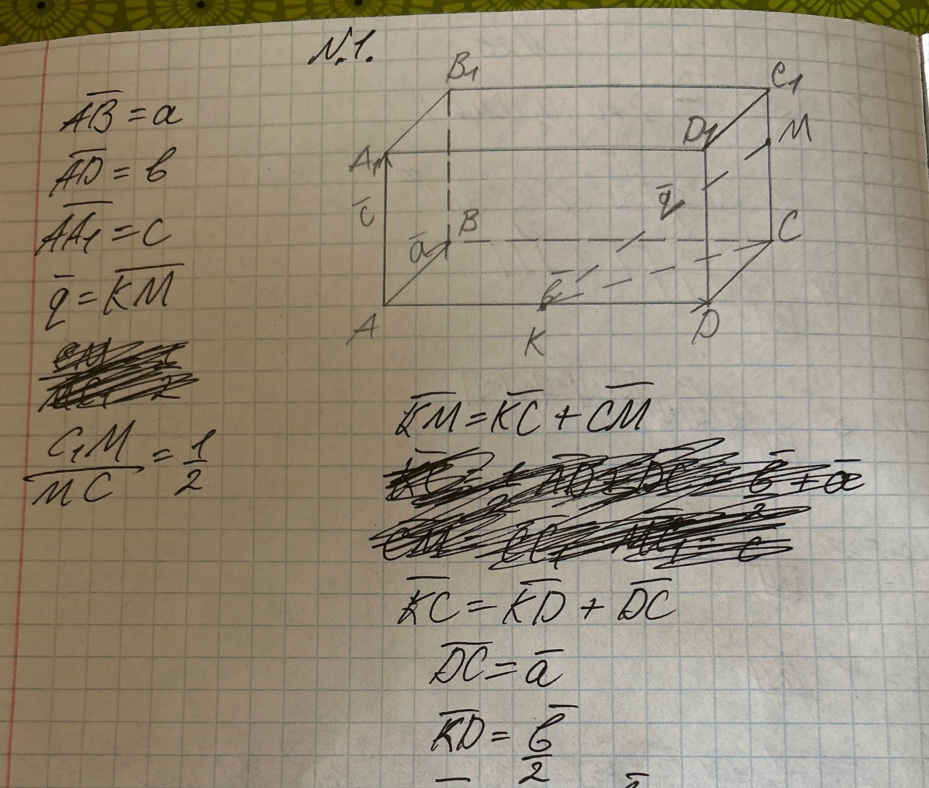 N.1.
AB = a
AD = b
AA₁ = c
q = KM
C₁M / MC = 1/2
B₁
C₁
M
D₁
A₁
c
q
a
B
C
b
A
K
D
KM = KC + CM
KC = KD + DC
DC = a
KD = b/2